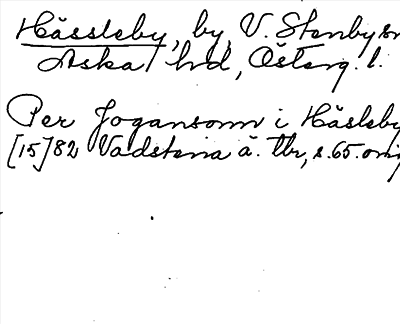 Hässleby, by, V. Stenby sn
Aska hd, Österg. l.
Per Jogansonn i Häsleby
[15]82 Vadstena ä. tbr, s. 65. orig